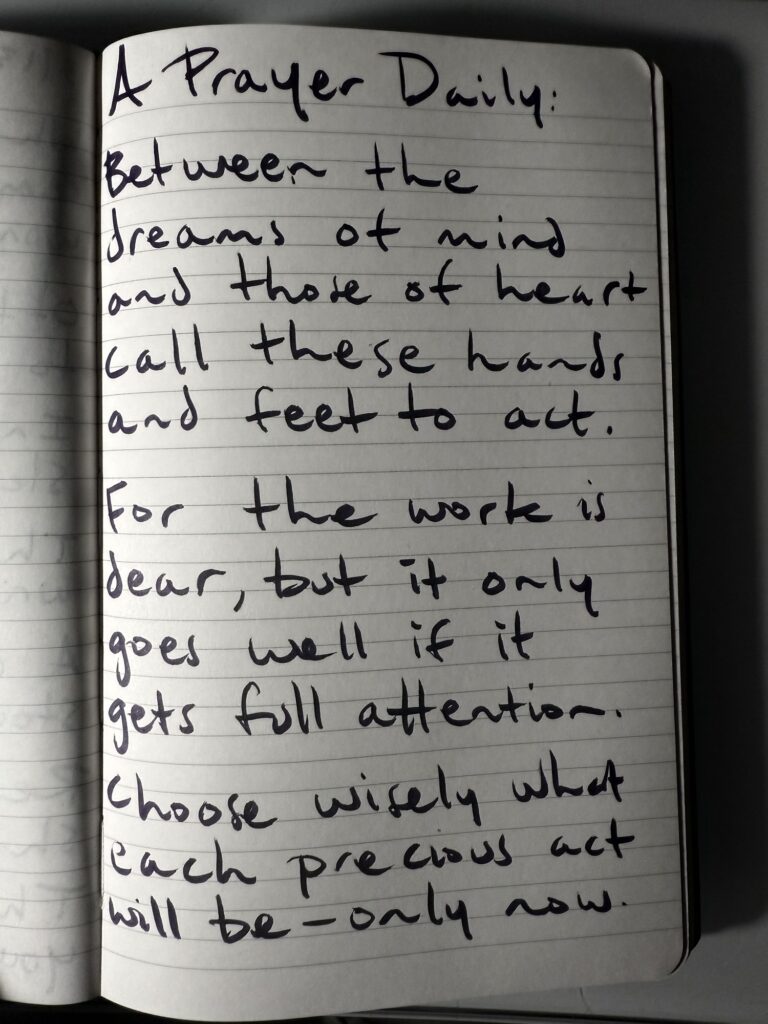 A Prayer Daily:
Between the
dreams of mind
and those of heart
call these hands
and feet to act.
For the work is
dear, but it only
goes well if it
gets full attention.
Choose wisely what
each precious act
will be - only now.